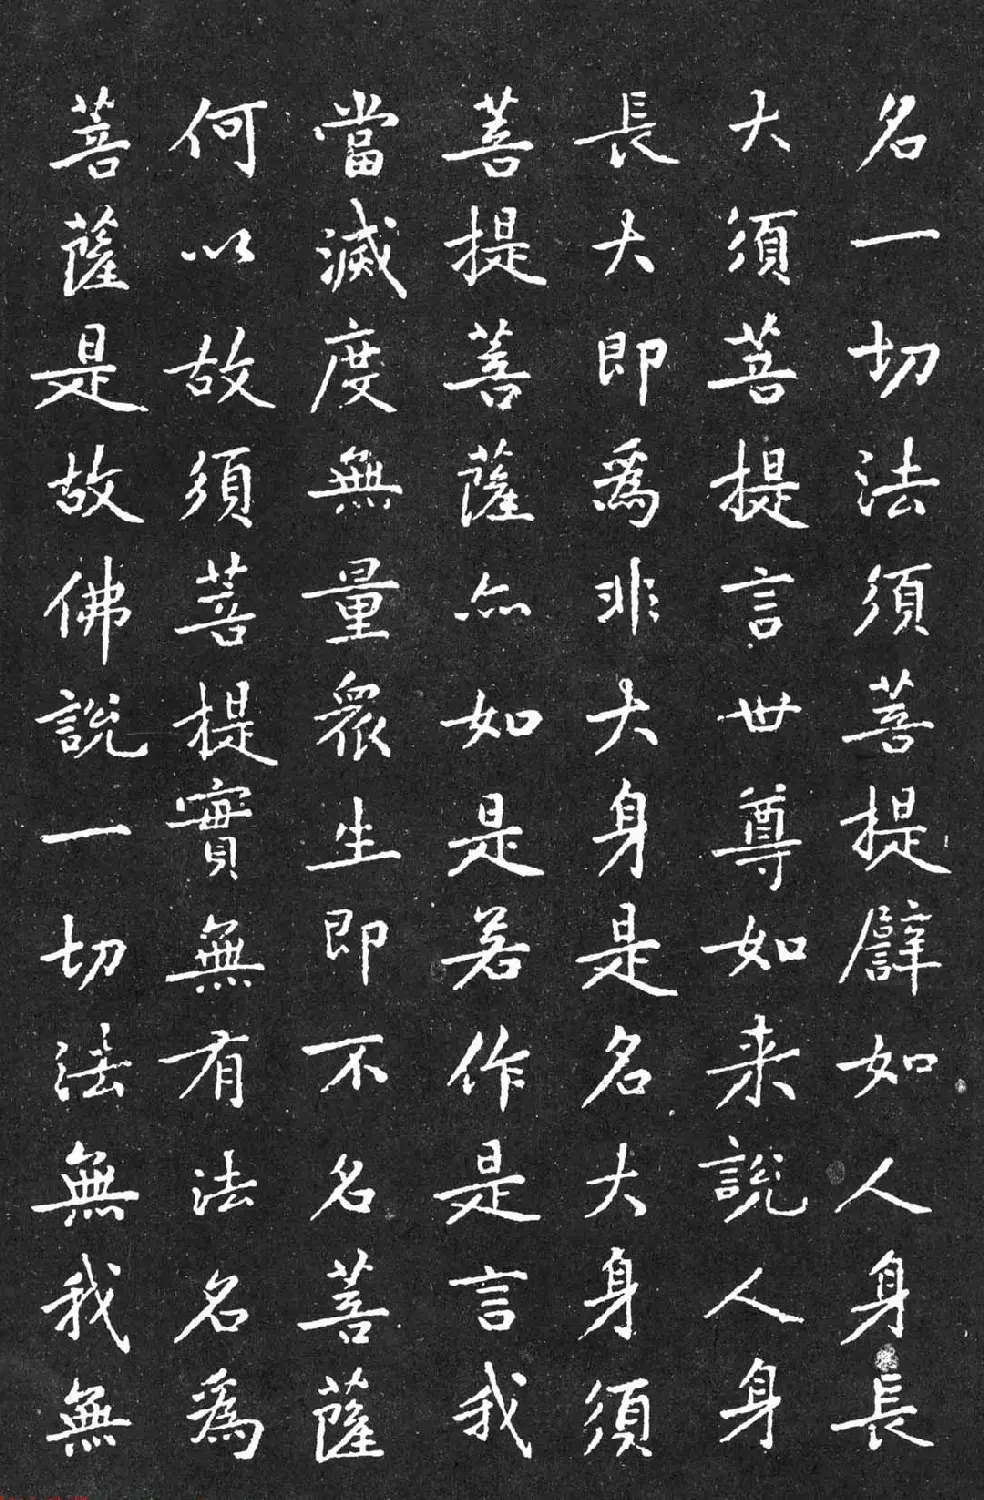 名一切法須菩提譬如人身長
大須菩提言世尊如来說人身
長大即為非大身是名大身須
菩提菩薩亦如是若作是言我
當滅度無量衆生即不名菩薩
何以故須菩提實無有法名為
菩薩是故佛說一切法無我無